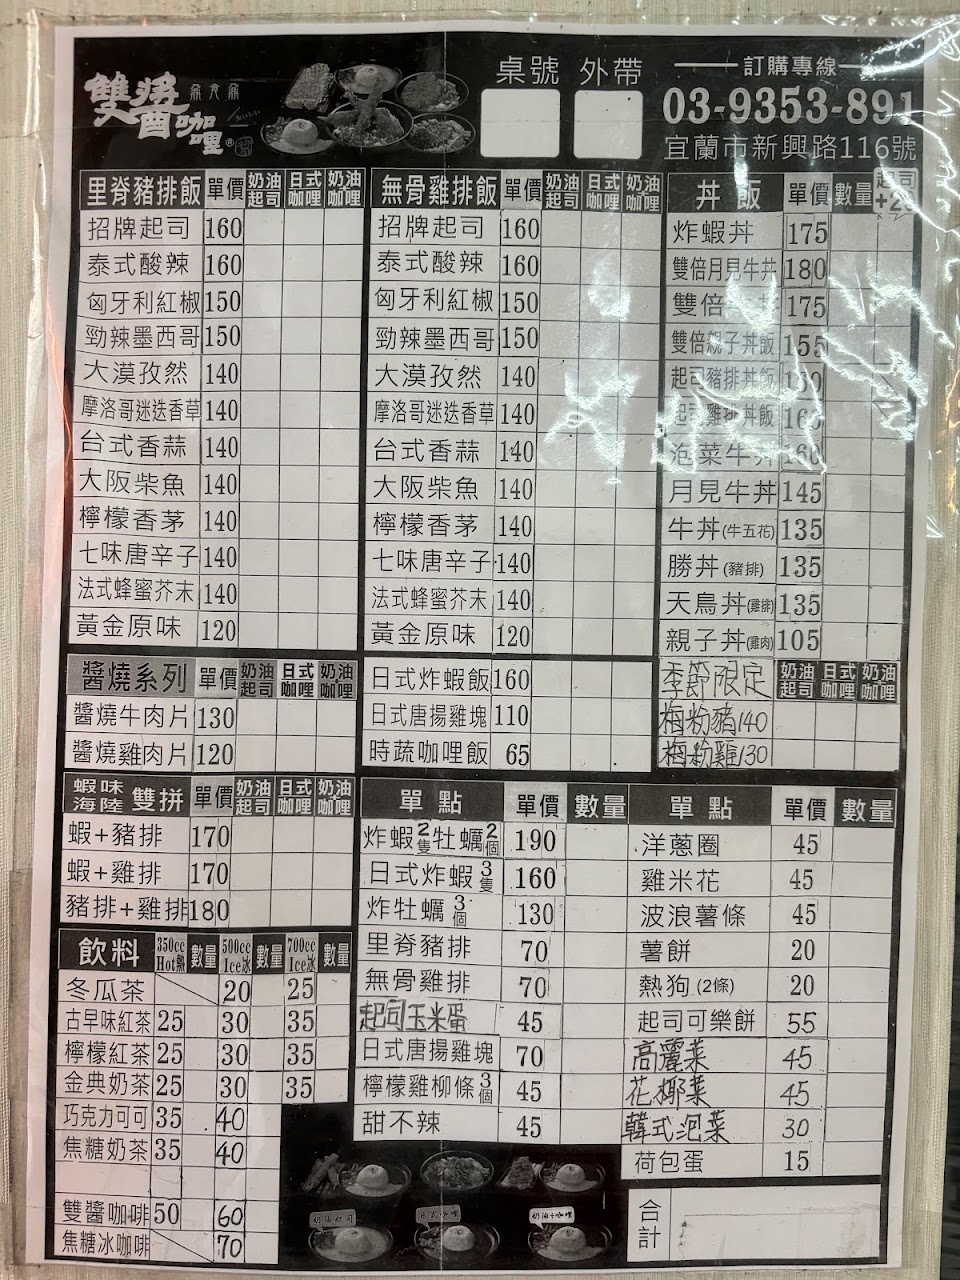 雙醬咖哩®
桌號 外帶
訂購專線
03-9353-891
宜蘭市新興路116號
里脊豬排飯 單價 奶油起司 日式咖哩 奶油咖哩
招牌起司 160
泰式酸辣 160
匈牙利紅椒 150
勁辣墨西哥 150
大漠孜然 140
摩洛哥迷迭香草 140
台式香蒜 140
大阪柴魚 140
檸檬香茅 140
七味唐辛子 140
法式蜂蜜芥末 140
黃金原味 120
無骨雞排飯 單價 奶油起司 日式咖哩 奶油咖哩
招牌起司 160
泰式酸辣 160
匈牙利紅椒 150
勁辣墨西哥 150
大漠孜然 140
摩洛哥迷迭香草 140
台式香蒜 140
大阪柴魚 140
檸檬香茅 140
七味唐辛子 140
法式蜂蜜芥末 140
黃金原味 120
丼飯 單價 數量 起司
炸蝦丼 175
雙倍月見牛丼 180
雙倍 175
雙倍親子丼飯 155
起司豬排丼飯
起司雞排丼飯 160
泡菜牛丼 160
月見牛丼 145
牛丼(牛五花) 135
勝丼(豬排) 135
天鳥丼(雞排) 135
親子丼(雞肉) 105
醬燒系列 單價 奶油起司 日式咖哩 奶油咖哩
醬燒牛肉片 130
醬燒雞肉片 120
日式炸蝦飯 160
日式唐揚雞塊 110
時蔬咖哩飯 65
季節限定 奶油起司 日式咖哩 奶油咖哩
梅粉豬 140
梅粉雞 130
蝦味海陸 雙拼 單價 奶油起司 日式咖哩 奶油咖哩
蝦+豬排 170
蝦+雞排 170
豬排+雞排 180
飲料 350cc Hot熱 數量 500cc Ice冰 數量 700cc Ice冰 數量
冬瓜茶 20 25
古早味紅茶 25 30 35
檸檬紅茶 25 30 35
金典奶茶 25 30 35
巧克力可可 35 40
焦糖奶茶 35 40
雙醬咖啡 50 60
焦糖冰咖啡 70
單點 單價 數量
炸蝦2隻牡蠣2個 190
日式炸蝦3隻 160
炸牡蠣3個 130
里脊豬排 70
無骨雞排 70
起司玉米蛋 45
日式唐揚雞塊 70
檸檬雞柳條3個 45
甜不辣 45
單點 單價 數量
洋蔥圈 45
雞米花 45
波浪薯條 45
薯餅 20
熱狗(2條) 20
起司可樂餅 55
高麗菜 45
花椰菜 45
韓式泡菜 30
荷包蛋 15
奶油起司 日式咖哩 奶油+咖哩
合計